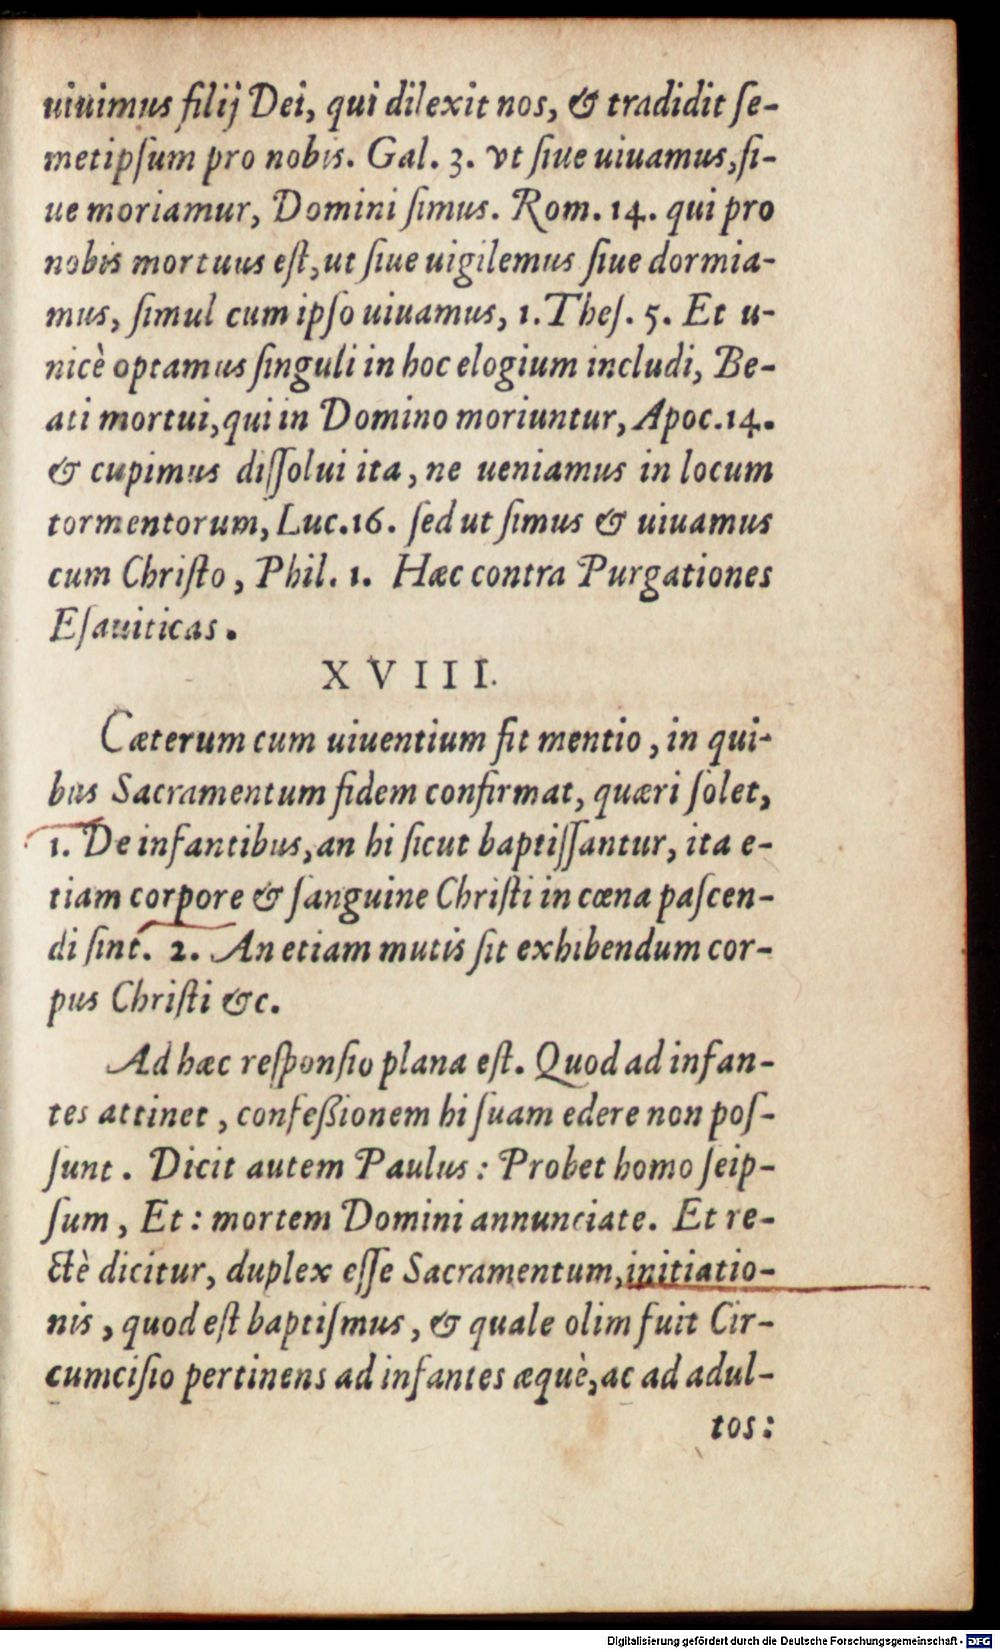 uiuimus filij Dei, qui dilexit nos, & tradidit ſe-
metipſum pro nobis. Gal. 3. vt ſiue uiuamus, ſi-
ue moriamur, Domini ſimus. Rom. 14. qui pro
nobis mortuus eſt, ut ſiue uigilemus ſiue dormia-
mus, ſimul cum ipſo uiuamus, 1. Theſ. 5. Et u-
nicè optamus ſinguli in hoc elogium includi, Be-
ati mortui, qui in Domino moriuntur, Apoc. 14.
& cupimus diſſolui ita, ne ueniamus in locum
tormentorum, Luc. 16. ſed ut ſimus & uiuamus
cum Chriſto, Phil. 1. Hæc contra Purgationes
Eſauiticas.
XVIII.
Cæterum cum uiuentium fit mentio, in qui-
bus Sacramentum fidem confirmat, quæri ſolet,
1. De infantibus, an hi ſicut baptiſſantur, ita e-
tiam corpore & ſanguine Chriſti in cœna paſcen-
di ſint. 2. An etiam mutis ſit exhibendum cor-
pus Chriſti &c.
Ad hæc reſponſio plana eſt. Quod ad infan-
tes attinet, confeßionem hi ſuam edere non poſ-
ſunt. Dicit autem Paulus: Probet homo ſeip-
ſum, Et: mortem Domini annunciate. Et re-
ctè dicitur, duplex eſſe Sacramentum, initiatio-
nis, quod eſt baptiſmus, & quale olim fuit Cir-
cumciſio pertinens ad infantes æquè, ac ad adul-
tos:
Digitalisierung gefördert durch die Deutsche Forschungsgemeinschaft - DFG